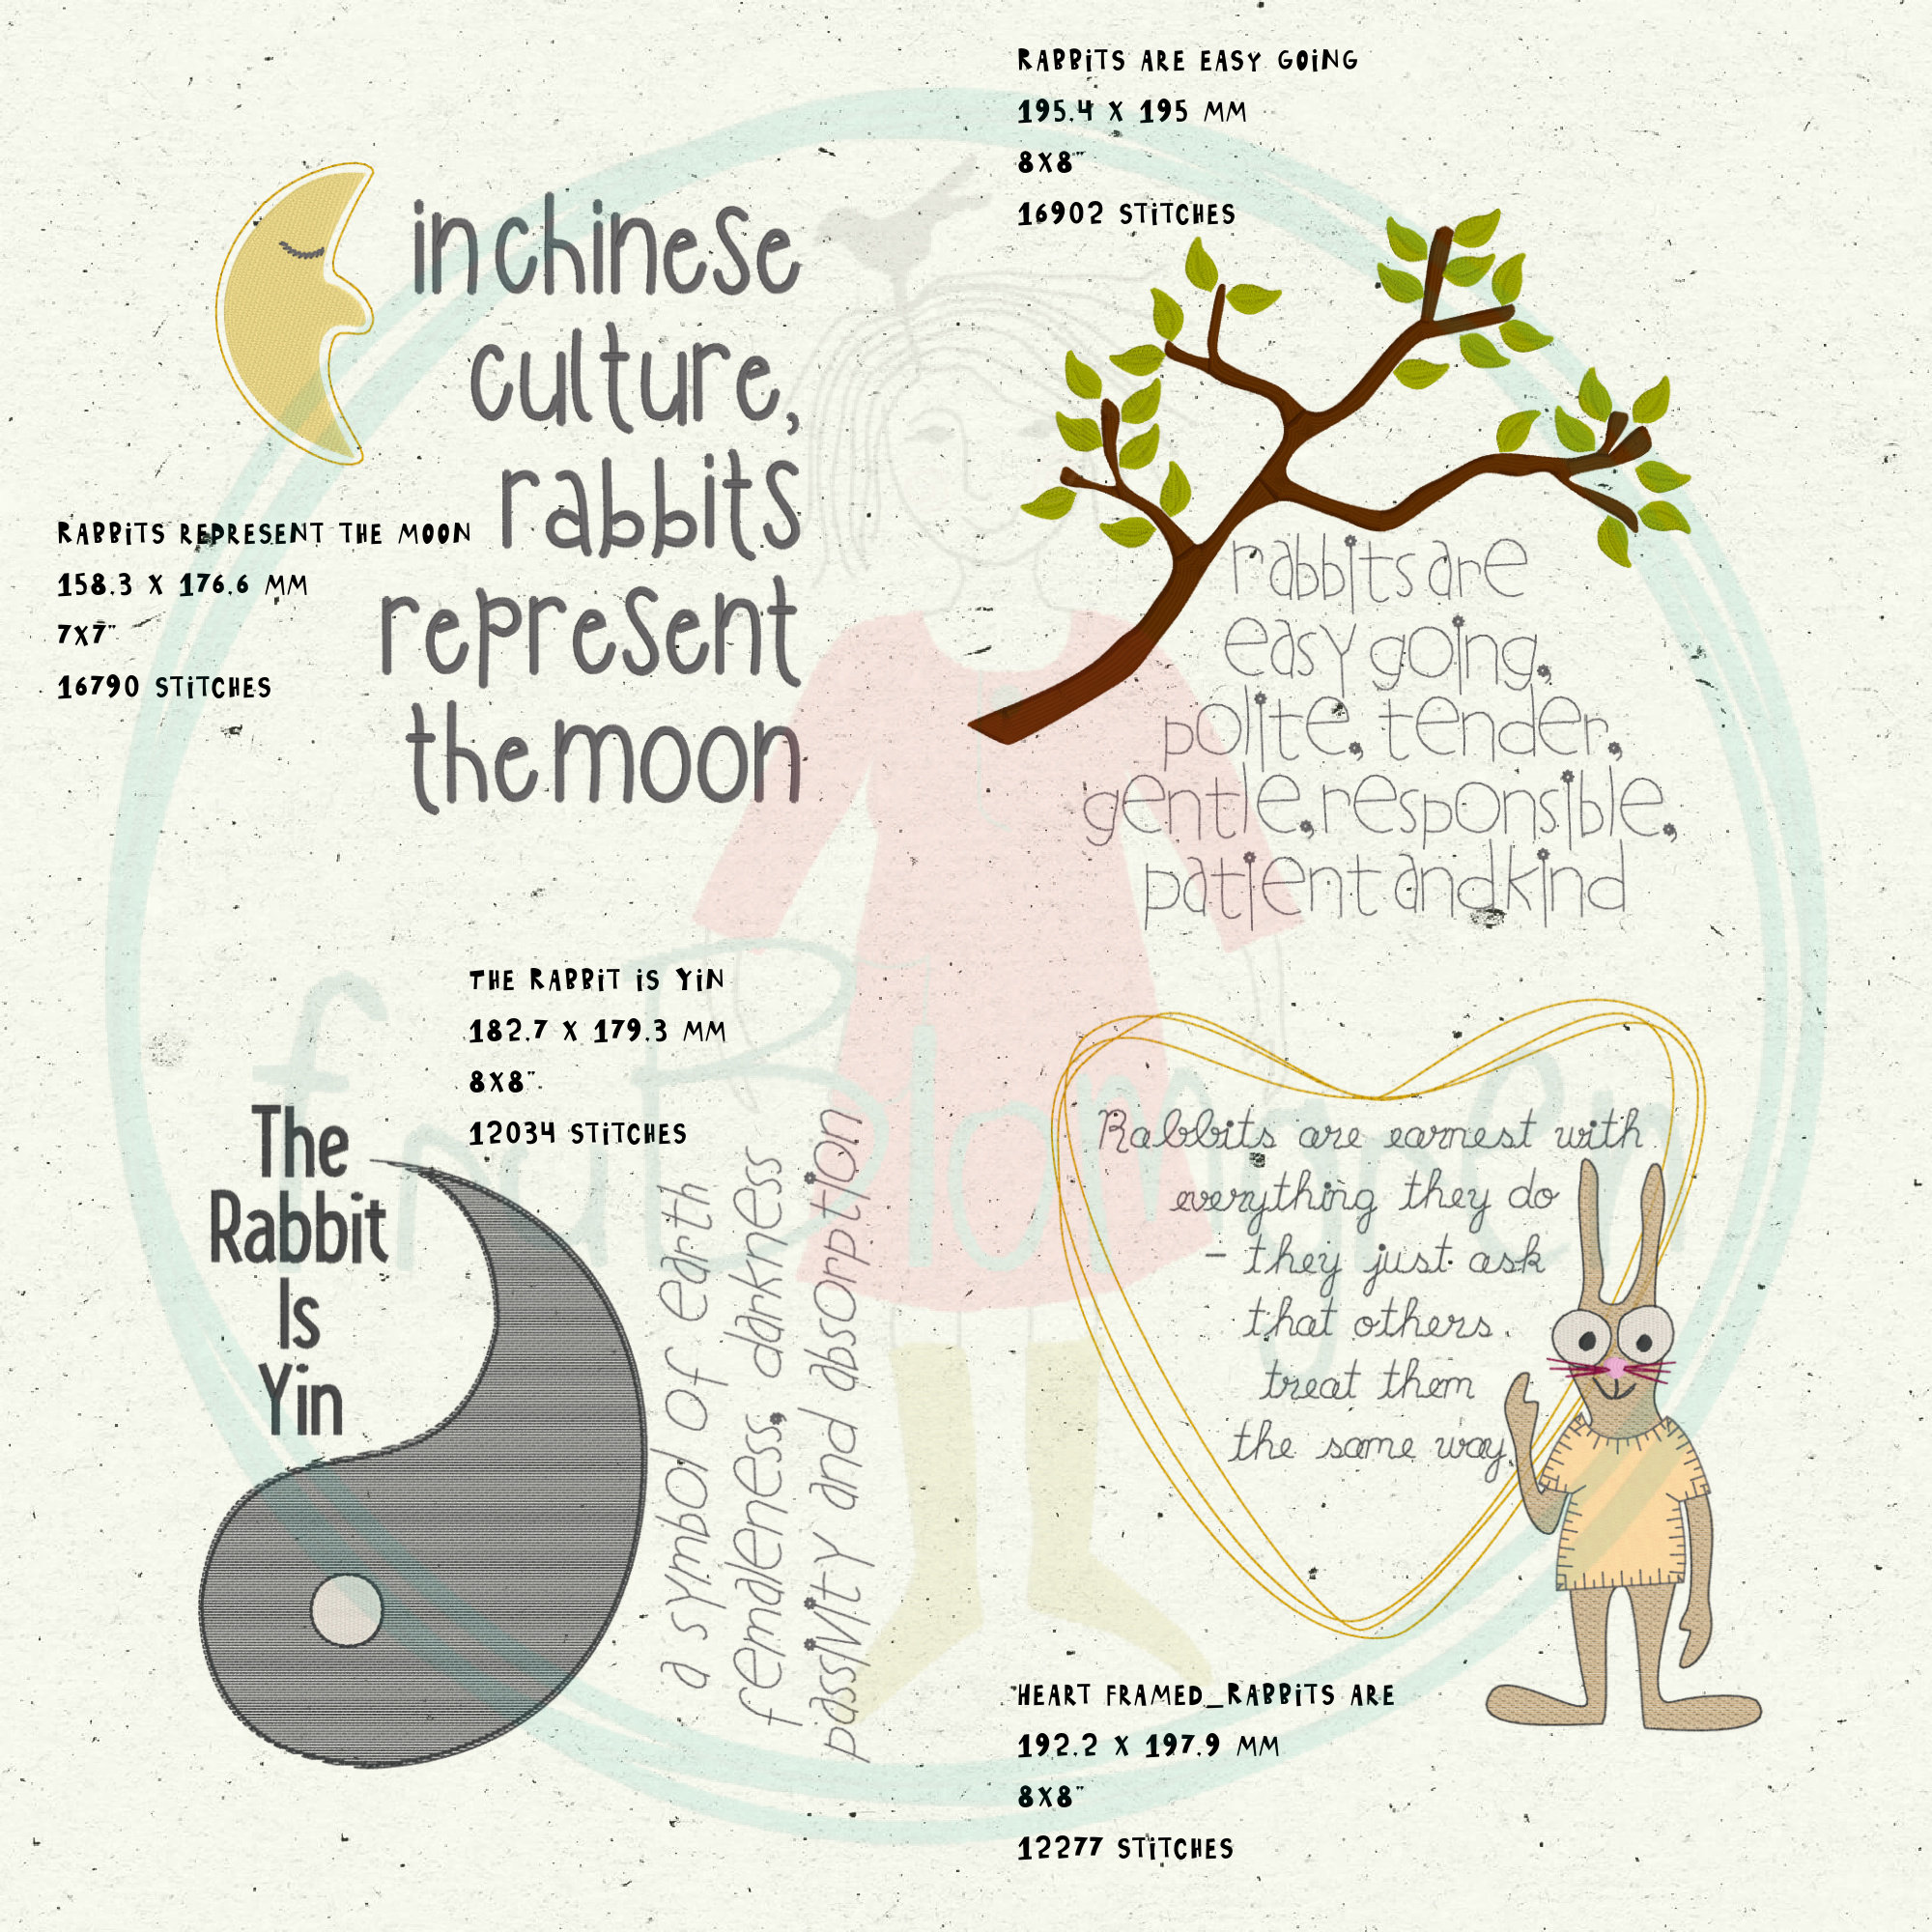 RABBiTS ARE EASY GOiNG
195.4 X 195 MM
8X8"
16902 STiTCHES
in chinese
culture,
rabbits
represent
the moon
RABBiTS REPRESENT THE MOON
158.3 X 176.6 MM
7X7"
16790 STiTCHES
rabbits are
easy going,
polite, tender,
gentle, responsible,
patient and kind
THE RABBiT iS YiN
182.7 X 179.3 MM
8X8"
12034 STiTCHES
The
Rabbit
Is
Yin
a symbol of earth
femaleness, darkness
passivity and absorption
Rabbits are earnest with
everything they do
- they just ask
that others
treat them
the same way.
HEART FRAMED_RABBiTS ARE
192.2 X 197.9 MM
8X8"
12277 STiTCHES